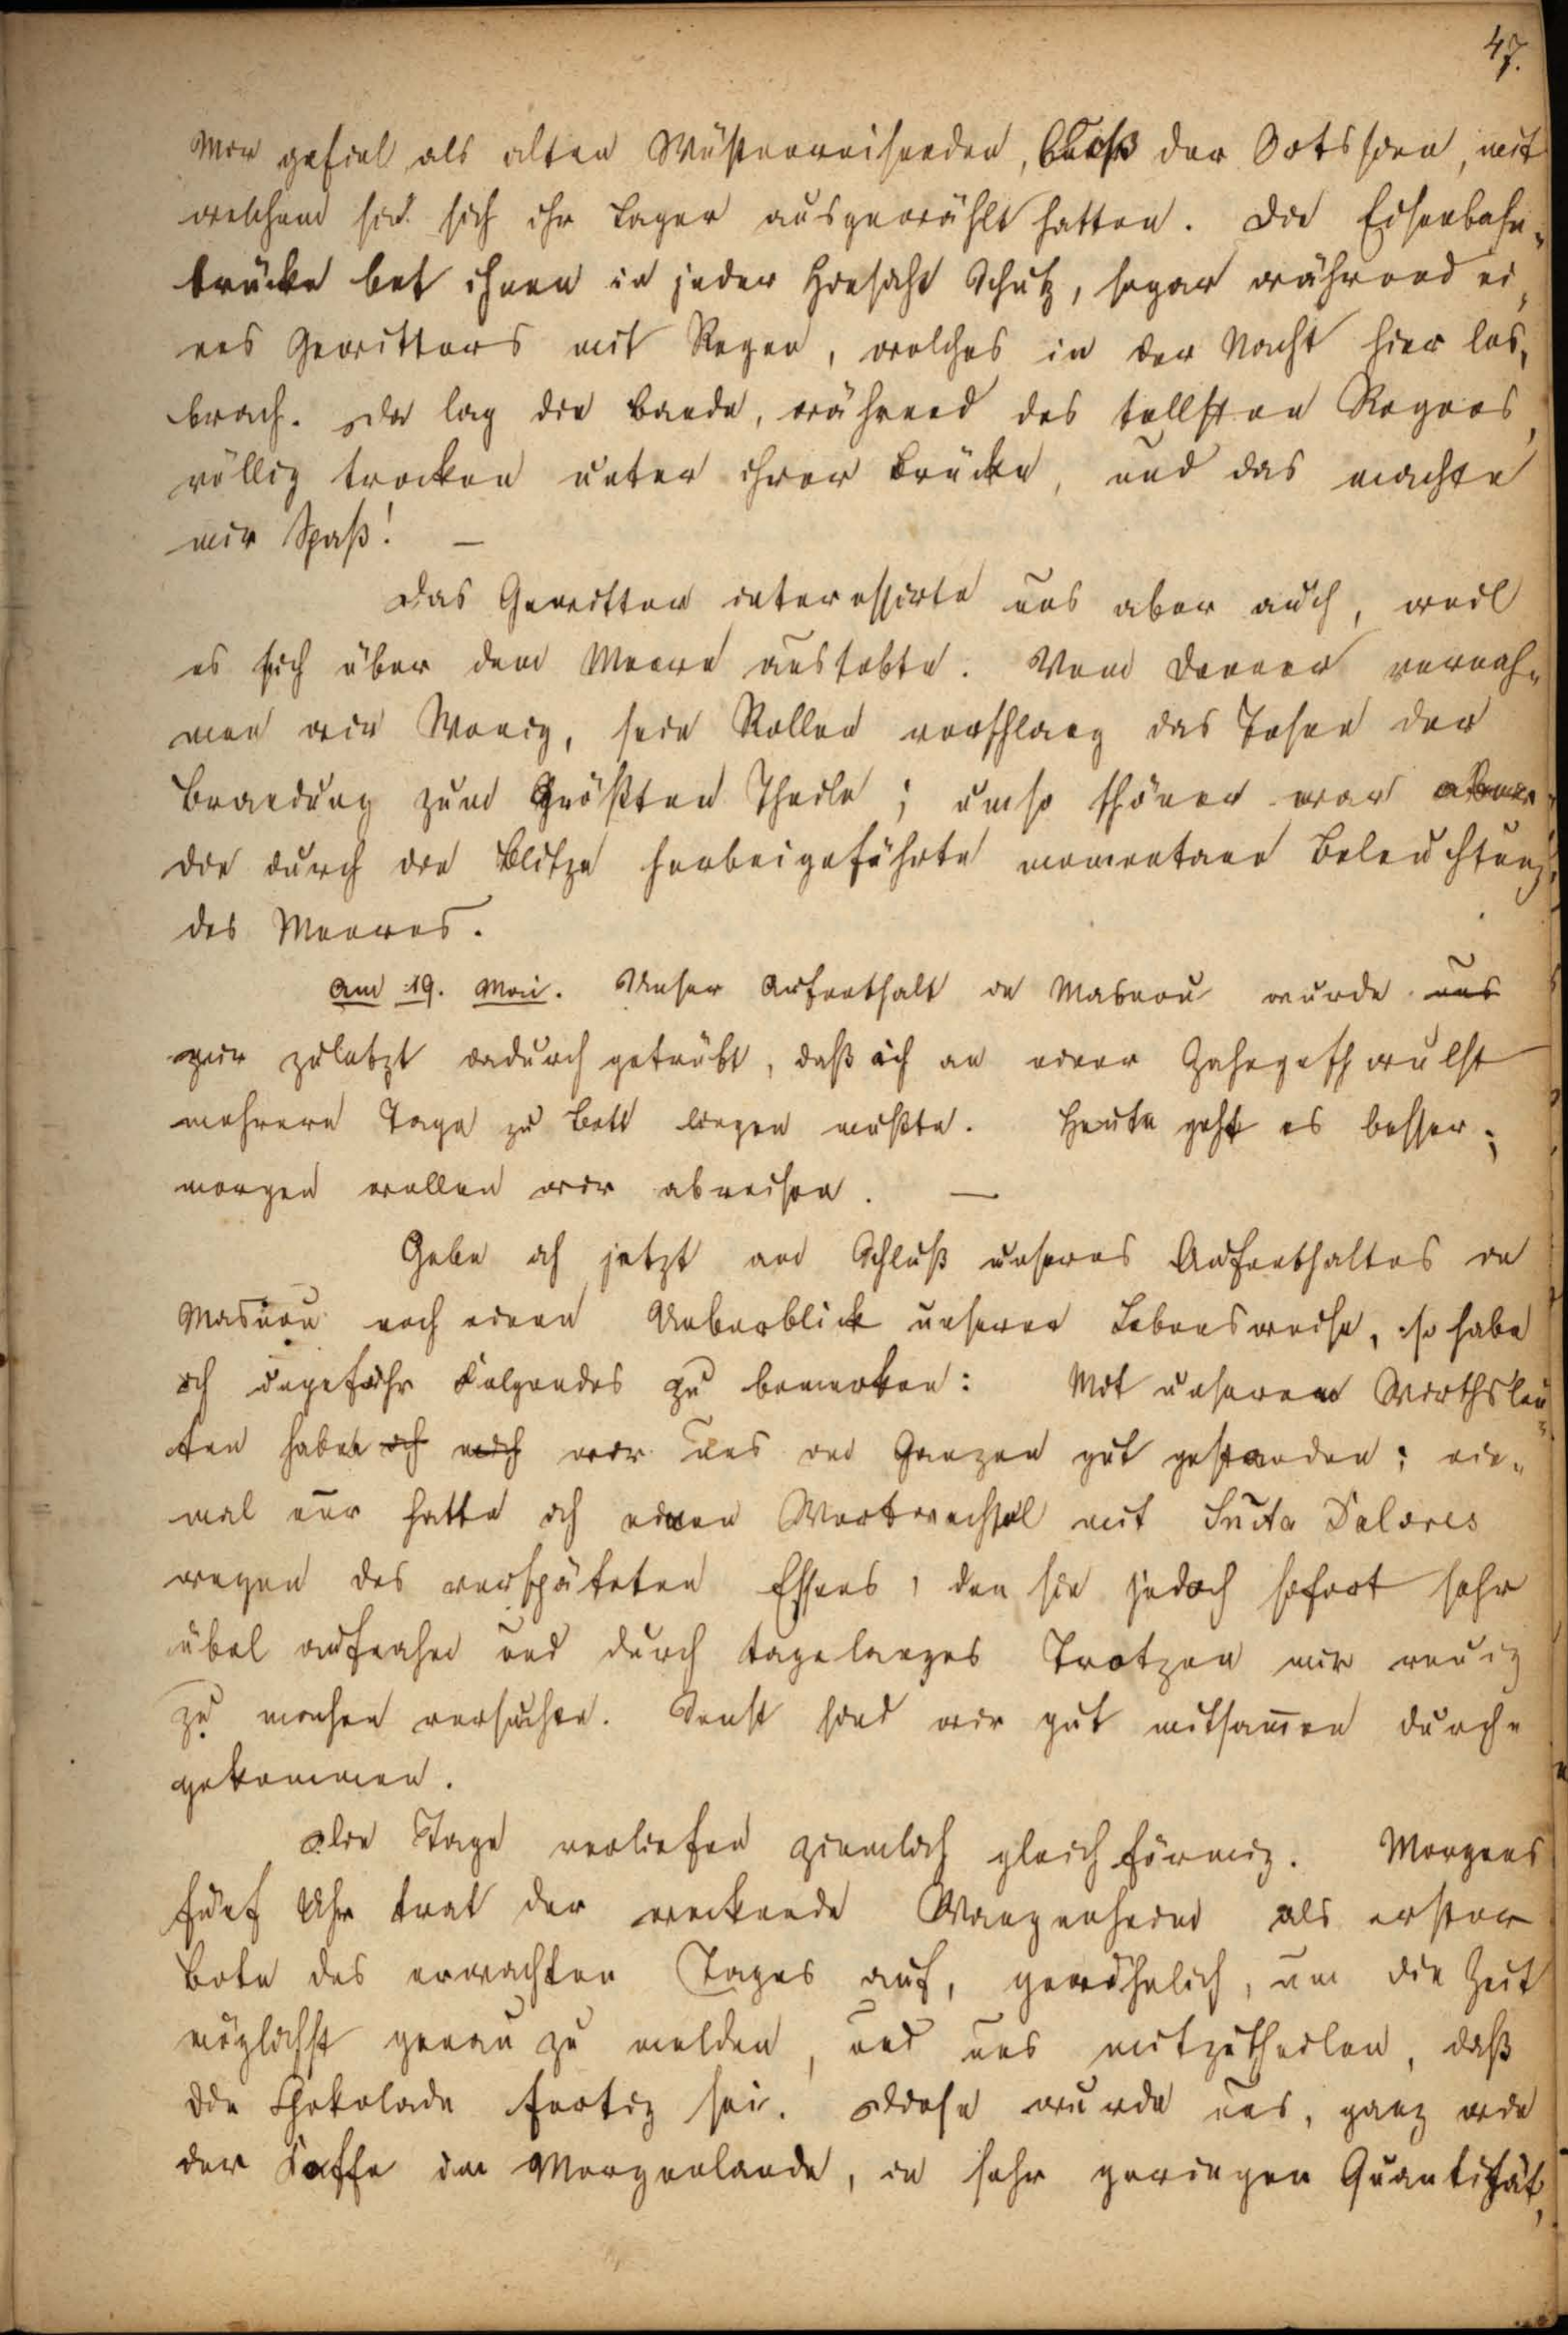 47.
Mir gefiel als alten Wüstenreisenden, bloß der Ortssinn, mit
welchem sie sich ihr Lager ausgewählt hatten. Die Eisenbahn-
brücke bot ihnen in jeder Hinsicht Schutz, sogar während ei-
nes Gewitters mit Regen, welches in der Nacht hier los-
brach. Da lag die Bande, während des tollsten Regens,
völlig trocken unter ihrer Brücke, und das machte
mir Spaß! —
Das Gewitter interessirte uns aber auch, weil
es sich über dem Meere austobte. Vom Donner vernah-
men wir Wenig, sein Rollen verschlang das Tosen der
Brandung zum Größten Theile; umso schöner war aber
die durch die Blitze herbeigeführte momentane Beleuchtung
des Meeres.
Am 19. Mai. Unser Aufenthalt in Masnou wurde uns
mir zuletzt dadurch getrübt, daß ich an einer Zahngeschwulst
mehrere Tage zu Bett liegen mußte. Heute geht es besser;
morgen wollen wir abreisen. —
Gebe ich jetzt am Schluß unseres Aufenthaltes in
Masnou noch einen Ueberblick unserer Lebensweise, so habe
ich ungefähr Folgendes zu bemerken: Mit unseren Wirthsleu-
ten haben ich mich wir uns im Ganzen gut gestanden; ein-
mal nur hatte ich einen Wortwechsel mit Dolores
wegen des verspäteten Essens, den sie jedoch sofort sehr
übel aufnahm und durch tagelanges Trotzen mir reuig
zu machen versuchte. Sonst sind wir gut mitsam̅en durch-
gekommen.
Die Tage verliefen ziemlich gleichförmig. Morgens
fünf Uhr trat der weckende Wangenheim als erster
Bote des erwachten Tages auf, gewöhnlich, um die Zeit
möglichst genau zu melden, und uns mitzutheilen, daß
die Chokolade fertig sei. Diese wurde uns, ganz wie
der Kaffe im Morgenlande, in sehr geringen Quantität,